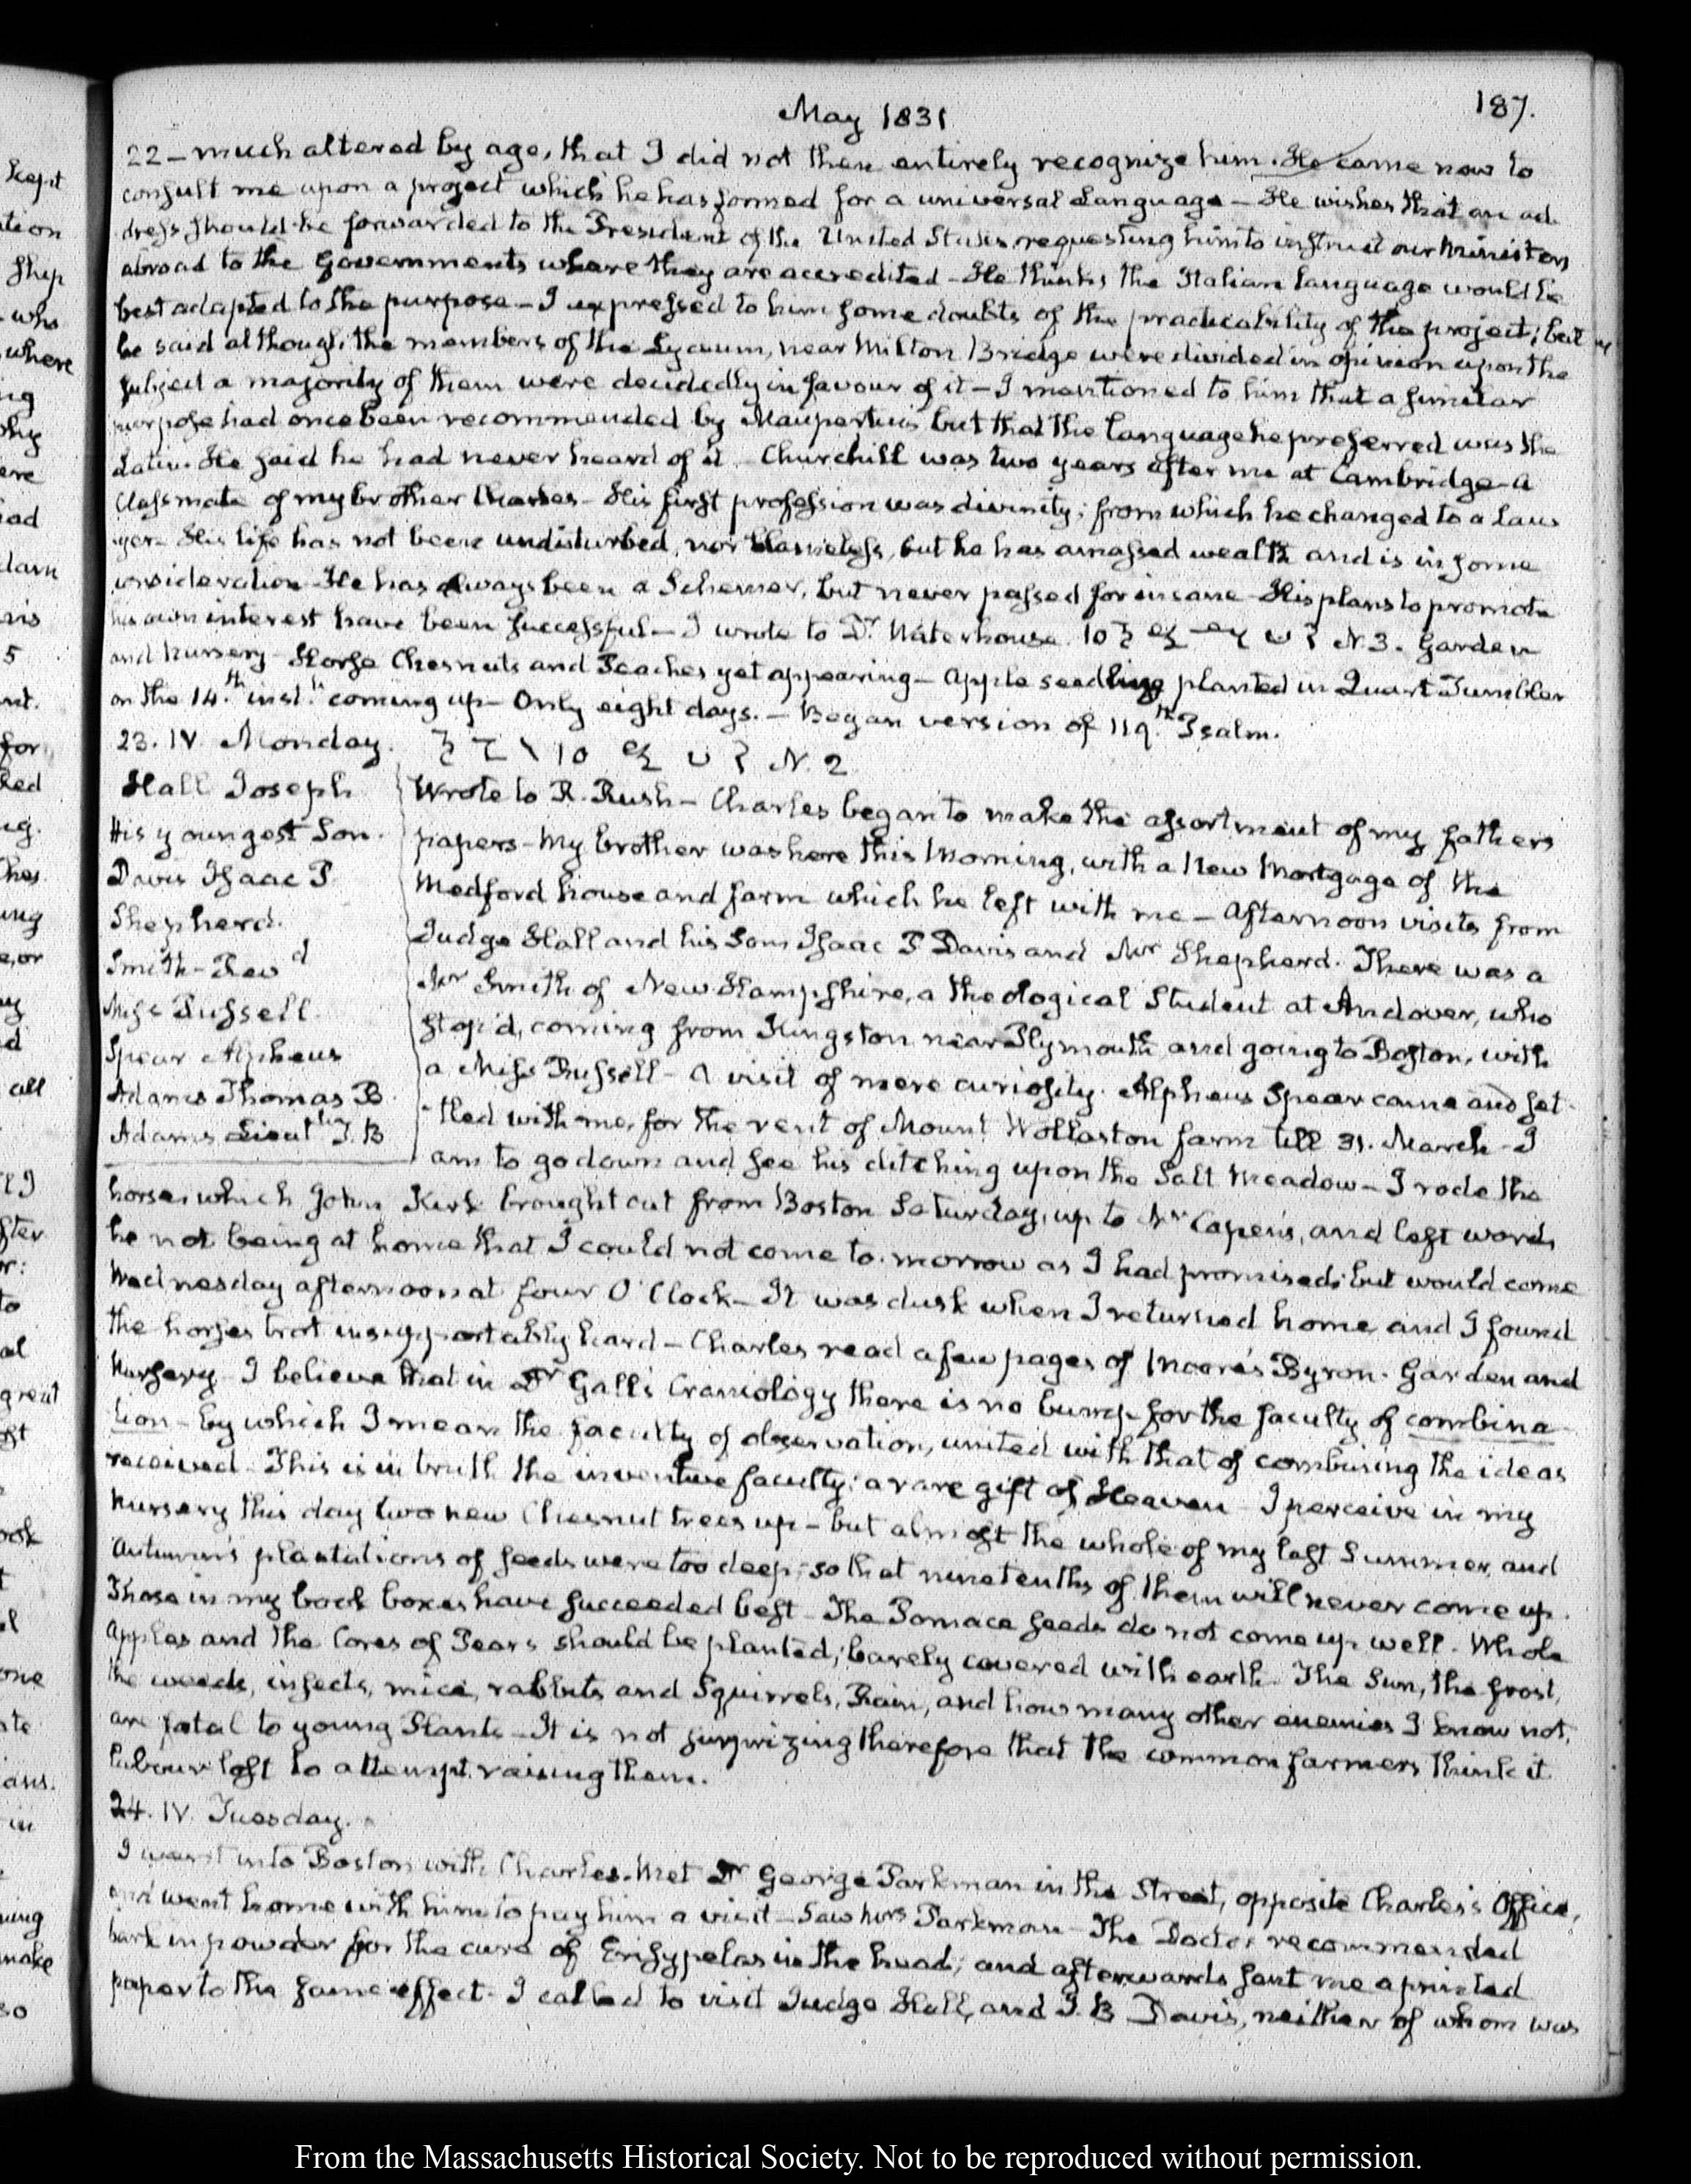 May 1831
187.
22 – much altered by age, that I did not then entirely recognize him. He came now to
consult me upon a project which he has formed for a universal Language – He wishes that an ad
dress should be forwarded to the President of the United States requesting him to instruct our Ministers
abroad to the Governments where they are accredited – He thinks the Italian language would be
best adapted to the purpose – I expressed to him some doubts of the practicability of the project; but
he said although the members of the Lyceum, near Milton Bridge were divided in opinion upon the
subject a majority of them were decidedly in favour of it – I mentioned to him that a similar
purpose had once been recommended by Maupertuis but that the language he preferred was the
Latin. He said he had never heard of it. Churchill was two years after me at Cambridge – a
Classmate of my brother Charles – His first profession was divinity; from which he changed to a Law
yer – His life has not been undisturbed, nor blameless, but he has amassed wealth and is in some
consideration – He has always been a Schemer, but never passed for insane – His plans to promote
his own interest have been successful – I wrote to Dr. Waterhouse. 10 N. 3. Garden
and Nursery – Horse Chesnuts and Peaches yet appearing – Apple seedling planted in Quart Tumbler
on the 14.th inst.t coming up – Only eight days. – Began version of 119.th Psalm.
23. IV. Monday. 10 N. 2
Hall Joseph
His youngest Son.
Davis Isaac P
Shepherd.
Smith – Revd
Miss Russell.
Spear Alpheus
Adams Thomas B.
Adams Lieut T. B
Wrote to R. Rush – Charles began to make the assortment of my fathers
papers – My brother was here this Morning, with a New Mortgage of the
Medford house and farm which he left with me – Afternoon visits from
Judge Hall and his Son Isaac P Davis and Mr Shepherd. There was a
Mr Smith of New Hampshire, a theological Student at Andover, who
stop'd, coming from Kingston near Plymouth and going to Boston, with
a Miss Russell – A visit of mere curiosity. Alpheus Spear came and set
tled with me, for the rent of Mount Wollaston farm till 31. March – I
am to go down and see his ditching upon the Salt Meadow – I rode the
horse which John Kirk brought out from Boston Saturday, up to Mr Capen's, and left word,
he not being at home that I could not come to-morrow as I had promised; but would come
Wednesday afternoon at four O'Clock – It was dusk when I returned home and I found
the horses trot insupportably hard – Charles read a few pages of Moore's Byron. Garden and
Nursery. I believe that in Dr Gall's Craniology there is no bump for the faculty of combina
tion – by which I mean the faculty of observation, united with that of combining the ideas
received – This is in truth the inventive faculty; a rare gift of Heaven – I perceive in my
Nursery this day two new Chesnut trees up – but almost the whole of my last Summer and
Autumn's plantations of seeds were too deep; so that nine tenths of them will never come up.
Those in my box have succeeded best – The Pomace seeds do not come up well. Whole
Apples and the Cores of Pears should be planted; barely covered with earth. The Sun, the frost,
the weeds, insects, mice, rabbits and Squirrels, Rain, and how many other enemies I know not,
are fatal to young Plants – It is not surprizing therefore that the common farmers think it
labour lost to attempt raising them.
24. IV. Tuesday.
I went into Boston with Charles. Met Dr George Parkman in the Street, opposite Charles's Office,
and went home with him to pay him a visit – Saw Mrs Parkman – The Doctor recommended
bark in powder for the cure of Erisypelas in the head; and afterwards sent me a printed
paper to the same effect. I called to visit Judge Hall, and I. P. Davis, neither of whom was
From the Massachusetts Historical Society. Not to be reproduced without permission.